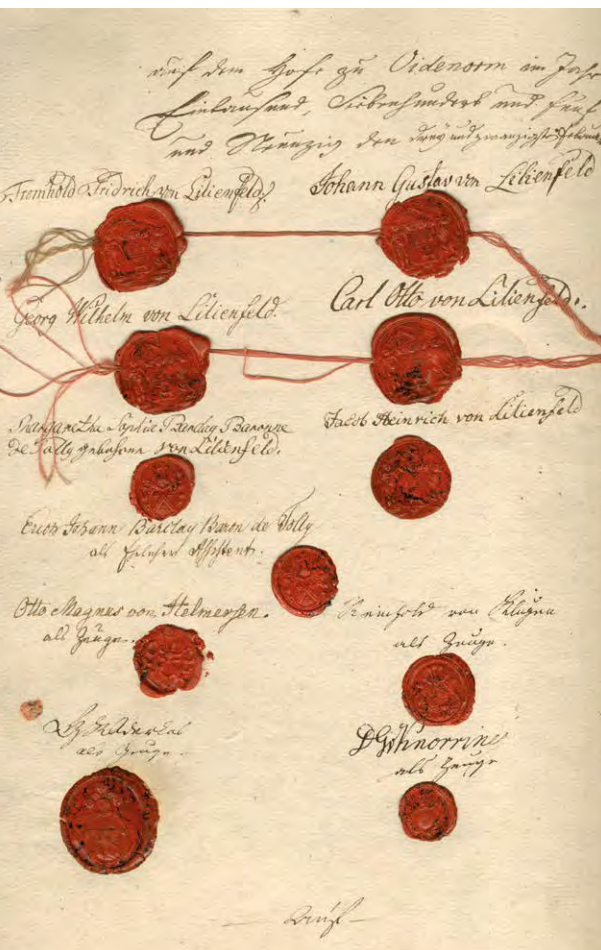 auf dem Hofe zu Oidenorm im Jahr
Eintausend, Siebenhundert und Fünf
und Neunzig den drey und zwanzigsten
Fromhold Fridrich von Lilienfeld.
Johann Gustav von Lilienfeld
Georg Wilhelm von Lilienfeld.
Carl Otto von Lilienfeld.
Margaretha Sophia Barclay Baronne
de Tolly gebohrne von Lilienfeld.
Jacob Heinrich von Lilienfeld
Erich Johann Barclay Baron de Tolly
als ehelicher Assistent.
Otto Magnus von Helmersen.
als Zeuge.
Reinhold von Klugen
als Zeuge.
als Zeuge.
Knorring
als Zeuge